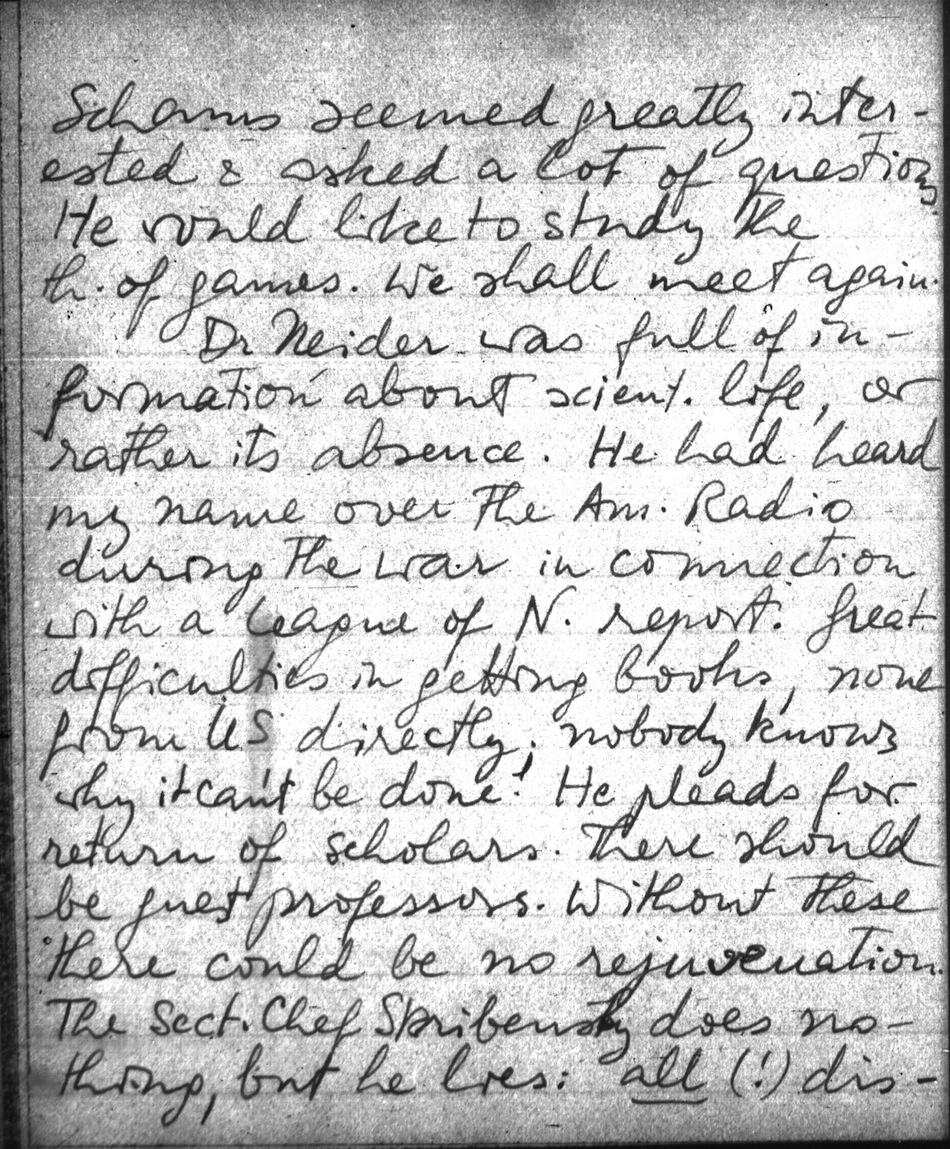 Schams seemed greatly inter-
ested & asked a lot of questions.
He would like to study the
th. of games. We shall meet again.
Dr Neider was full of in-
formation about scient. life, or
rather its absence. He had heard
my name over the Am. Radio
during the war in connection
with a League of N. report. Great
difficulties in getting books, none
from US directly; nobody knows
why it can't be done! He pleads for
return of scholars. There should
be guest professors. Without these
there could be no rejuvenation.
The Sect. Chef Skribensky does no-
thing, but he lies: all (!) dis-